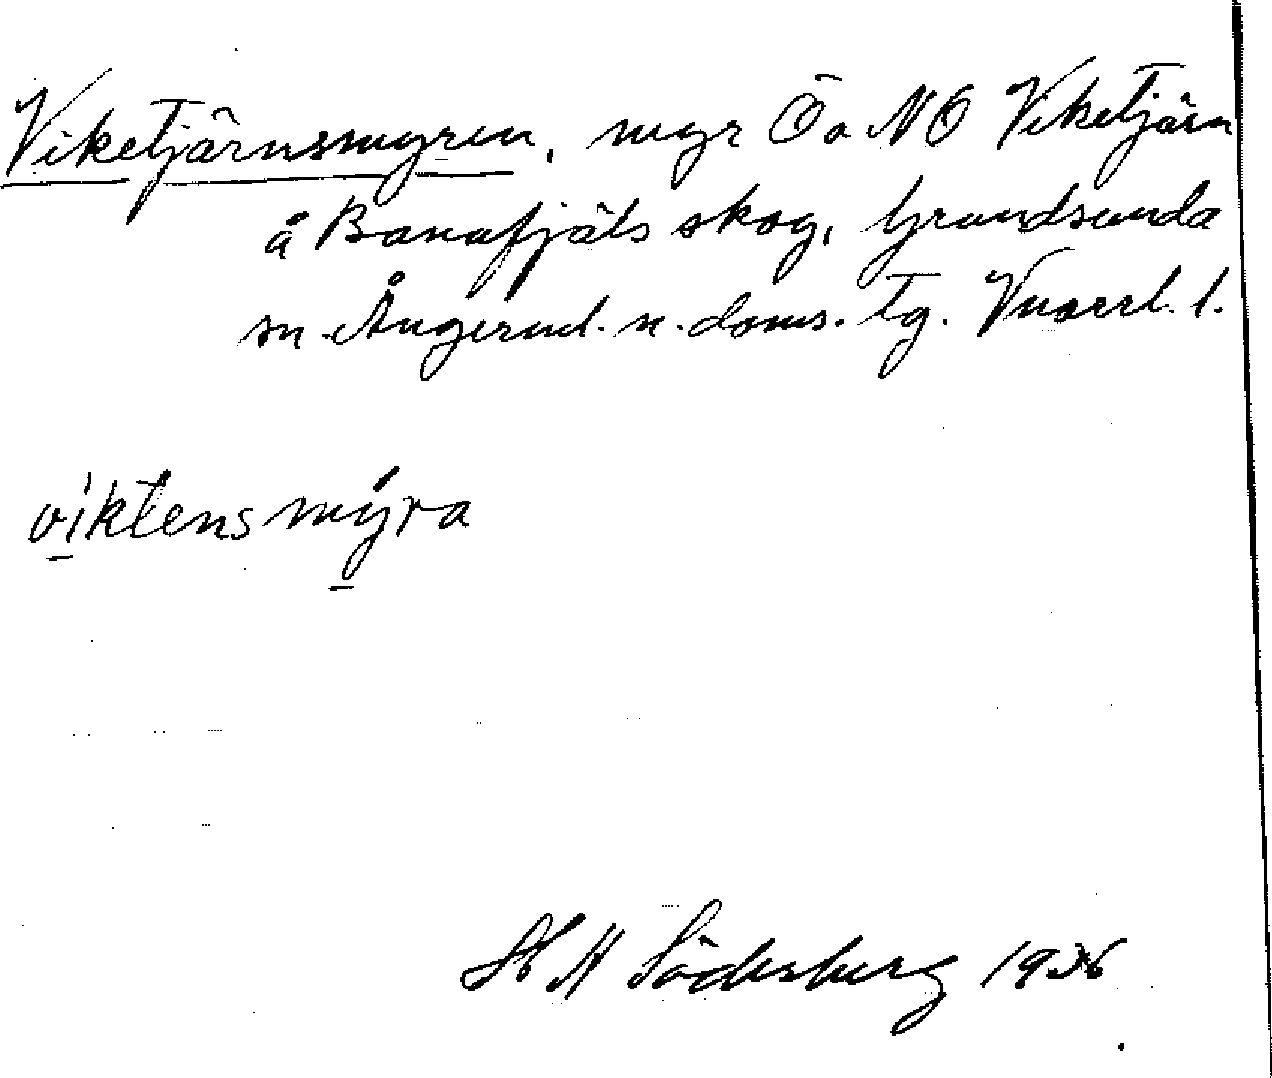 Viketjärnsmyren, myr Ö o NÖ Viketjärn
å Banafjäls skog, Grundsunda
sn. Ångerml. n. doms. tg. Vnorrl. l.
viktensmyra
H Söderberg 1936